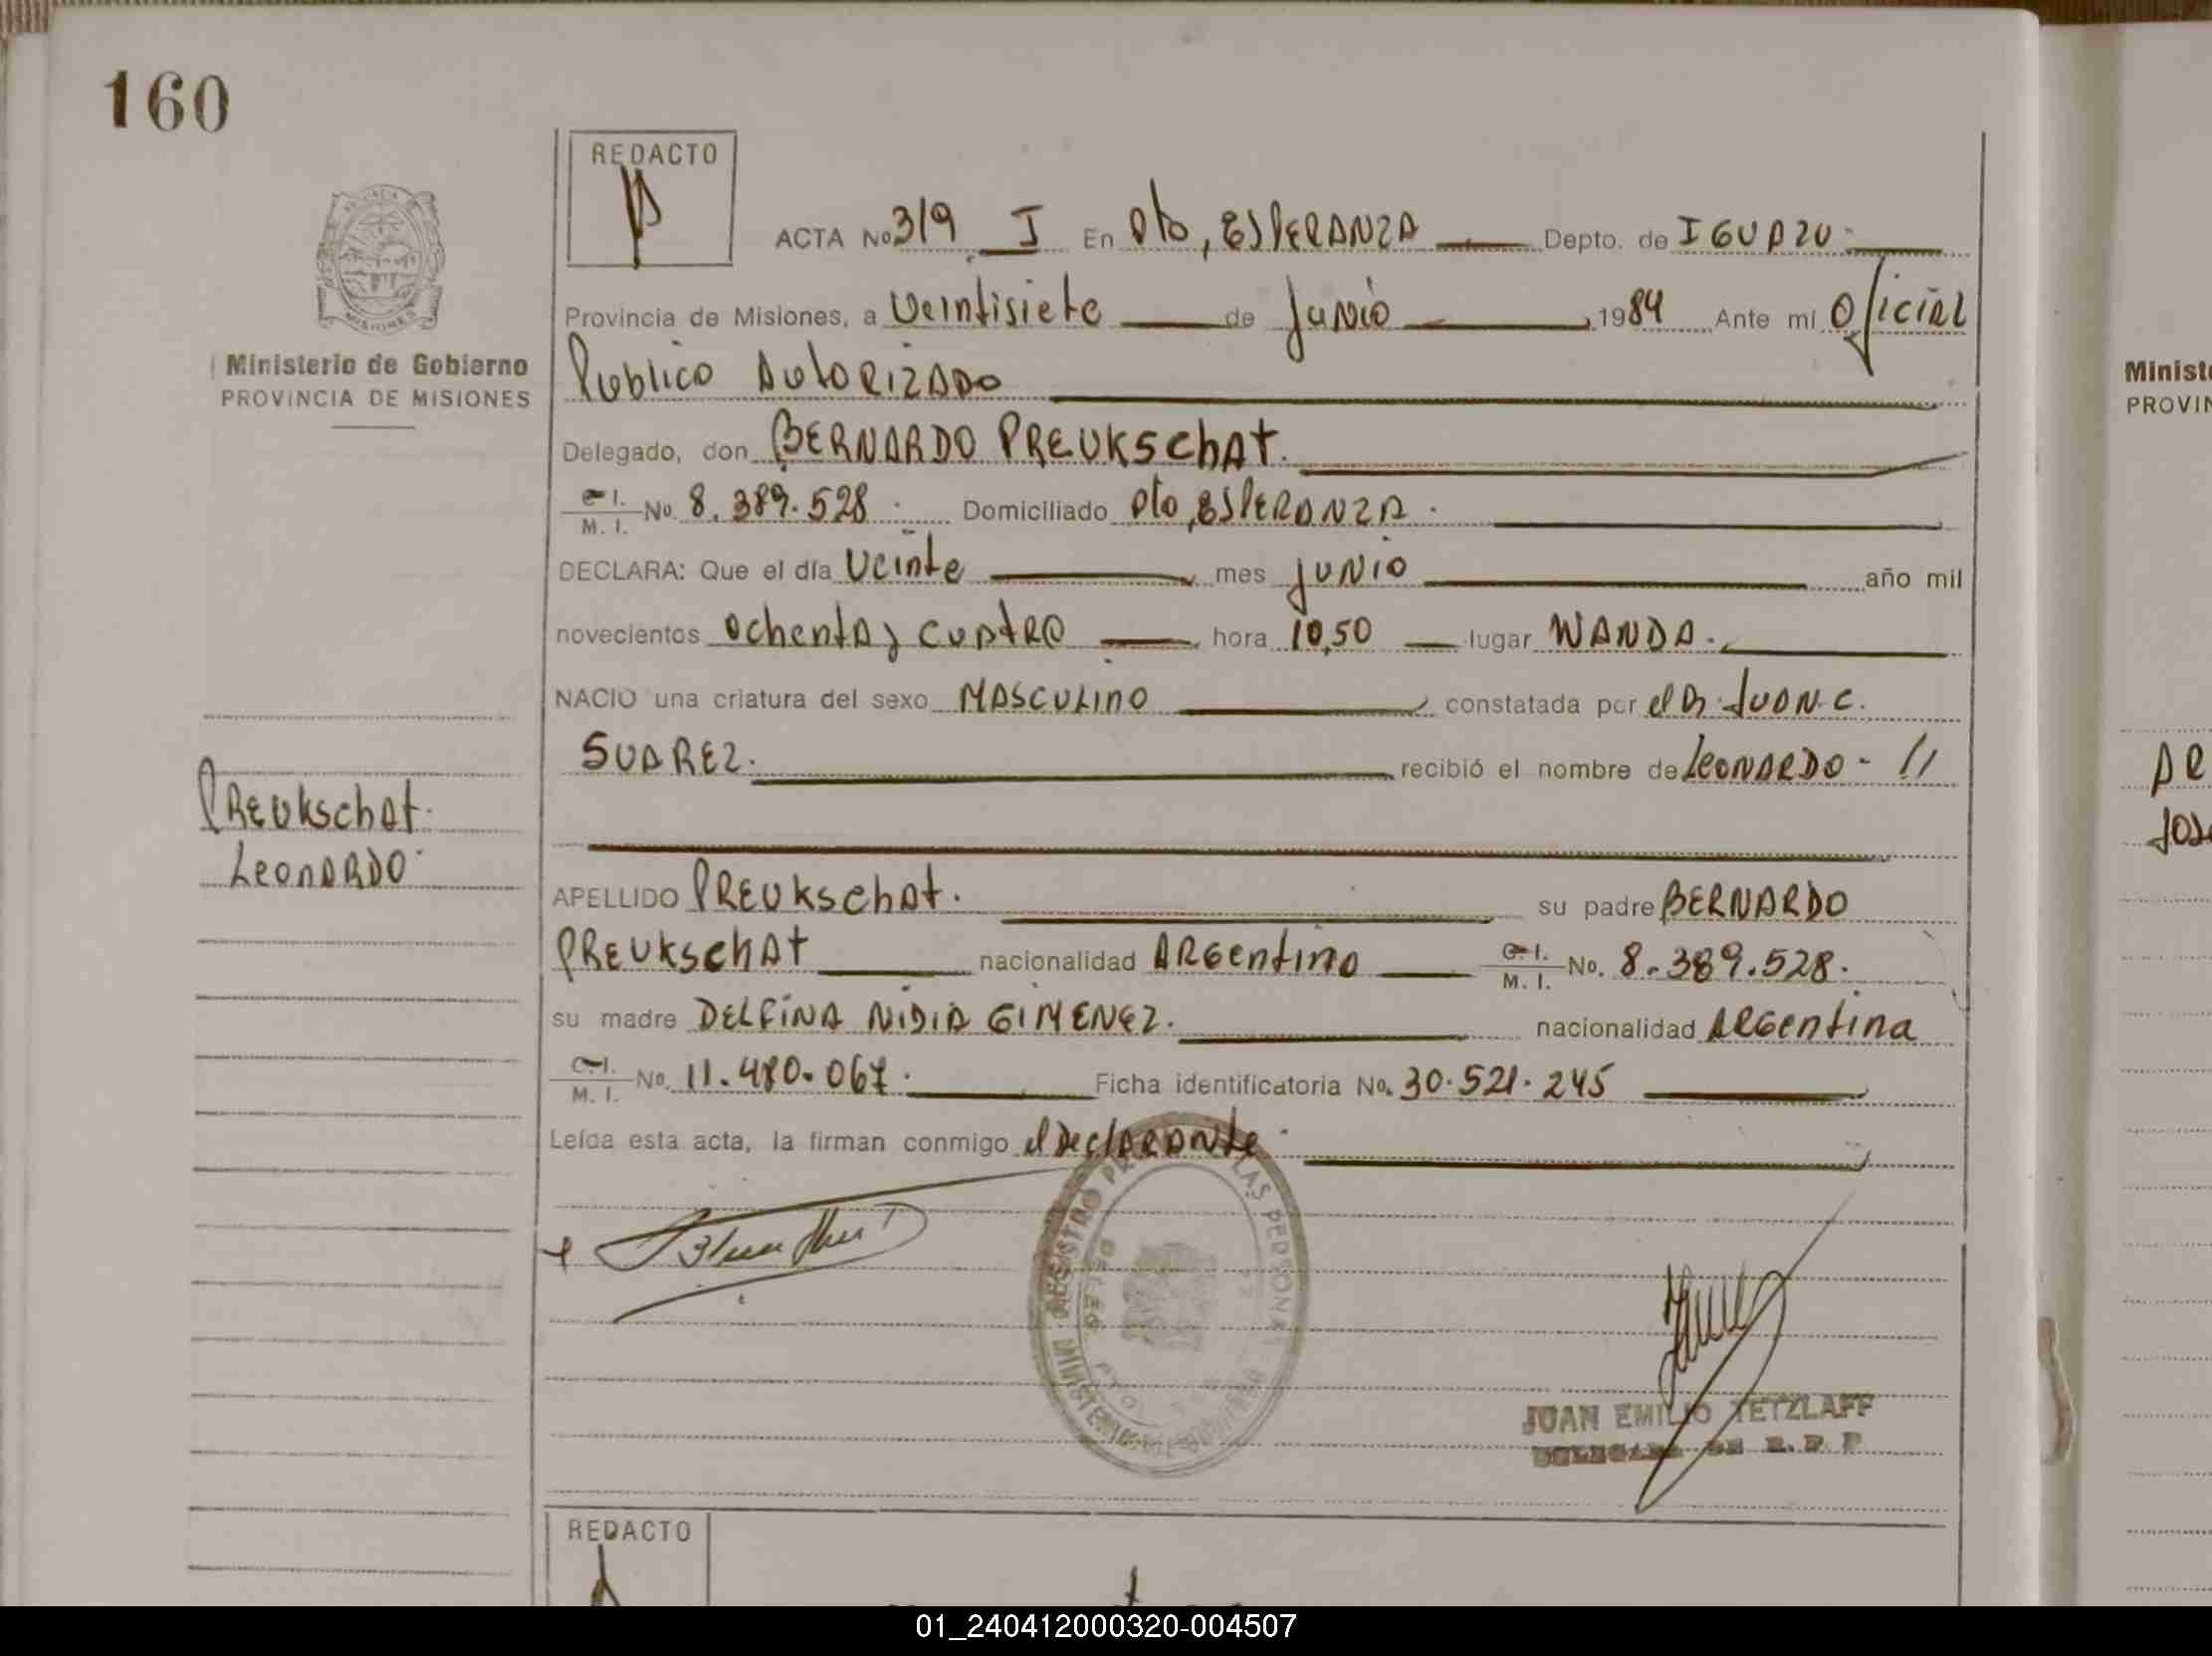 160
REDACTO
ACTA No 319 I En Pto, ESPERANZA Depto. de IGUAZU
Provincia de Misiones, a Veintisiete de Junio 1984 Ante mí Oficial
Publico Autorizado
Ministerio de Gobierno
PROVINCIA DE MISIONES
Delegado, don BERNARDO PREUKSCHAT.
C. I. M. I. No 8.389.528. Domiciliado Pto, ESPERANZA.
DECLARA: Que el día Veinte mes JUNIO año mil
novecientos Ochenta y Cuatro hora 10,50 lugar WANDA.
NACIO una criatura del sexo MASCULINO constatada por el Dr. JUAN C.
SUAREZ. recibió el nombre de LEONARDO - //
Preukschat.
LEONARDO
APELLIDO PREUKSCHAT. su padre BERNARDO
PREUKSCHAT nacionalidad ARGENTINO C. I. M. I. No. 8.389.528.
su madre DELFINA NIDIA GIMENEZ. nacionalidad ARGENTINA
C. I. M. I. No. 11.480.067. Ficha identificatoria No. 30.521.245
Leída esta acta, la firman conmigo el Declarante.
JUAN EMILIO TETZLAFF
DELEGADO DE R. P. P
REDACTO
Minist
PROVIN
01_240412000320-004507